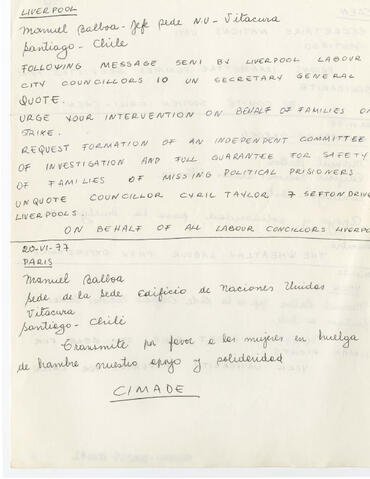 LIVERPOOL
Manuel Balboa - Jefe Sede N.U - Vitacura
Santiago - Chile
FOLLOWING MESSAGE SENT BY LIVERPOOL LABOUR
CITY COUNCILLORS TO UN SECRETARY GENERAL
QUOTE.
URGE YOUR INTERVENTION ON BEHALF OF FAMILIES ON
STRIKE.
REQUEST FORMATION OF AN INDEPENDENT COMMITTEE
OF INVESTIGATION AND FULL GUARANTEE FOR SAFETY
OF FAMILIES OF MISSING POLITICAL PRISIONERS
UNQUOTE COUNCILLOR CYRIL TAYLOR 7 SEFTON DRIVE
LIVERPOOL 8.
ON BEHALF OF ALL LABOUR CONCILLORS LIVERPOOL
20-VI-77
PARIS
Manuel Balboa
Sede de la Sede Edificio de Naciones Unidas
Vitacura
Santiago - Chile
Transmite por favor a las mujeres en huelga
de hambre nuestro apoyo y solidaridad
CIMADE